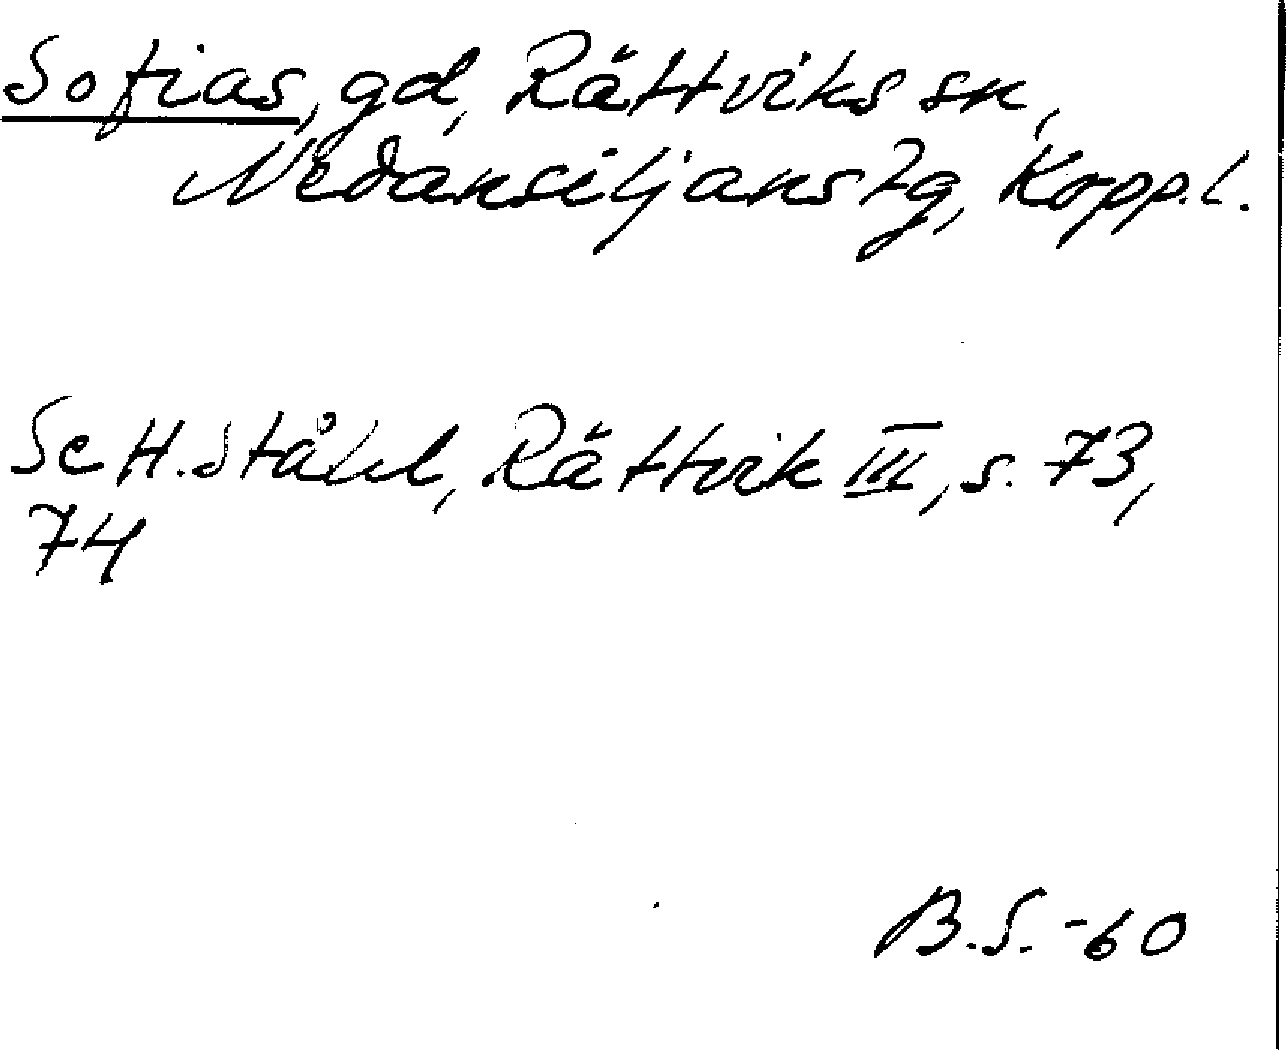 Sofias, gd, Rättviks sn,
Nedansiljans tg, Kopp.l.
Se H. Ståhl, Rättvik III, s. 73,
74
B.S. -60